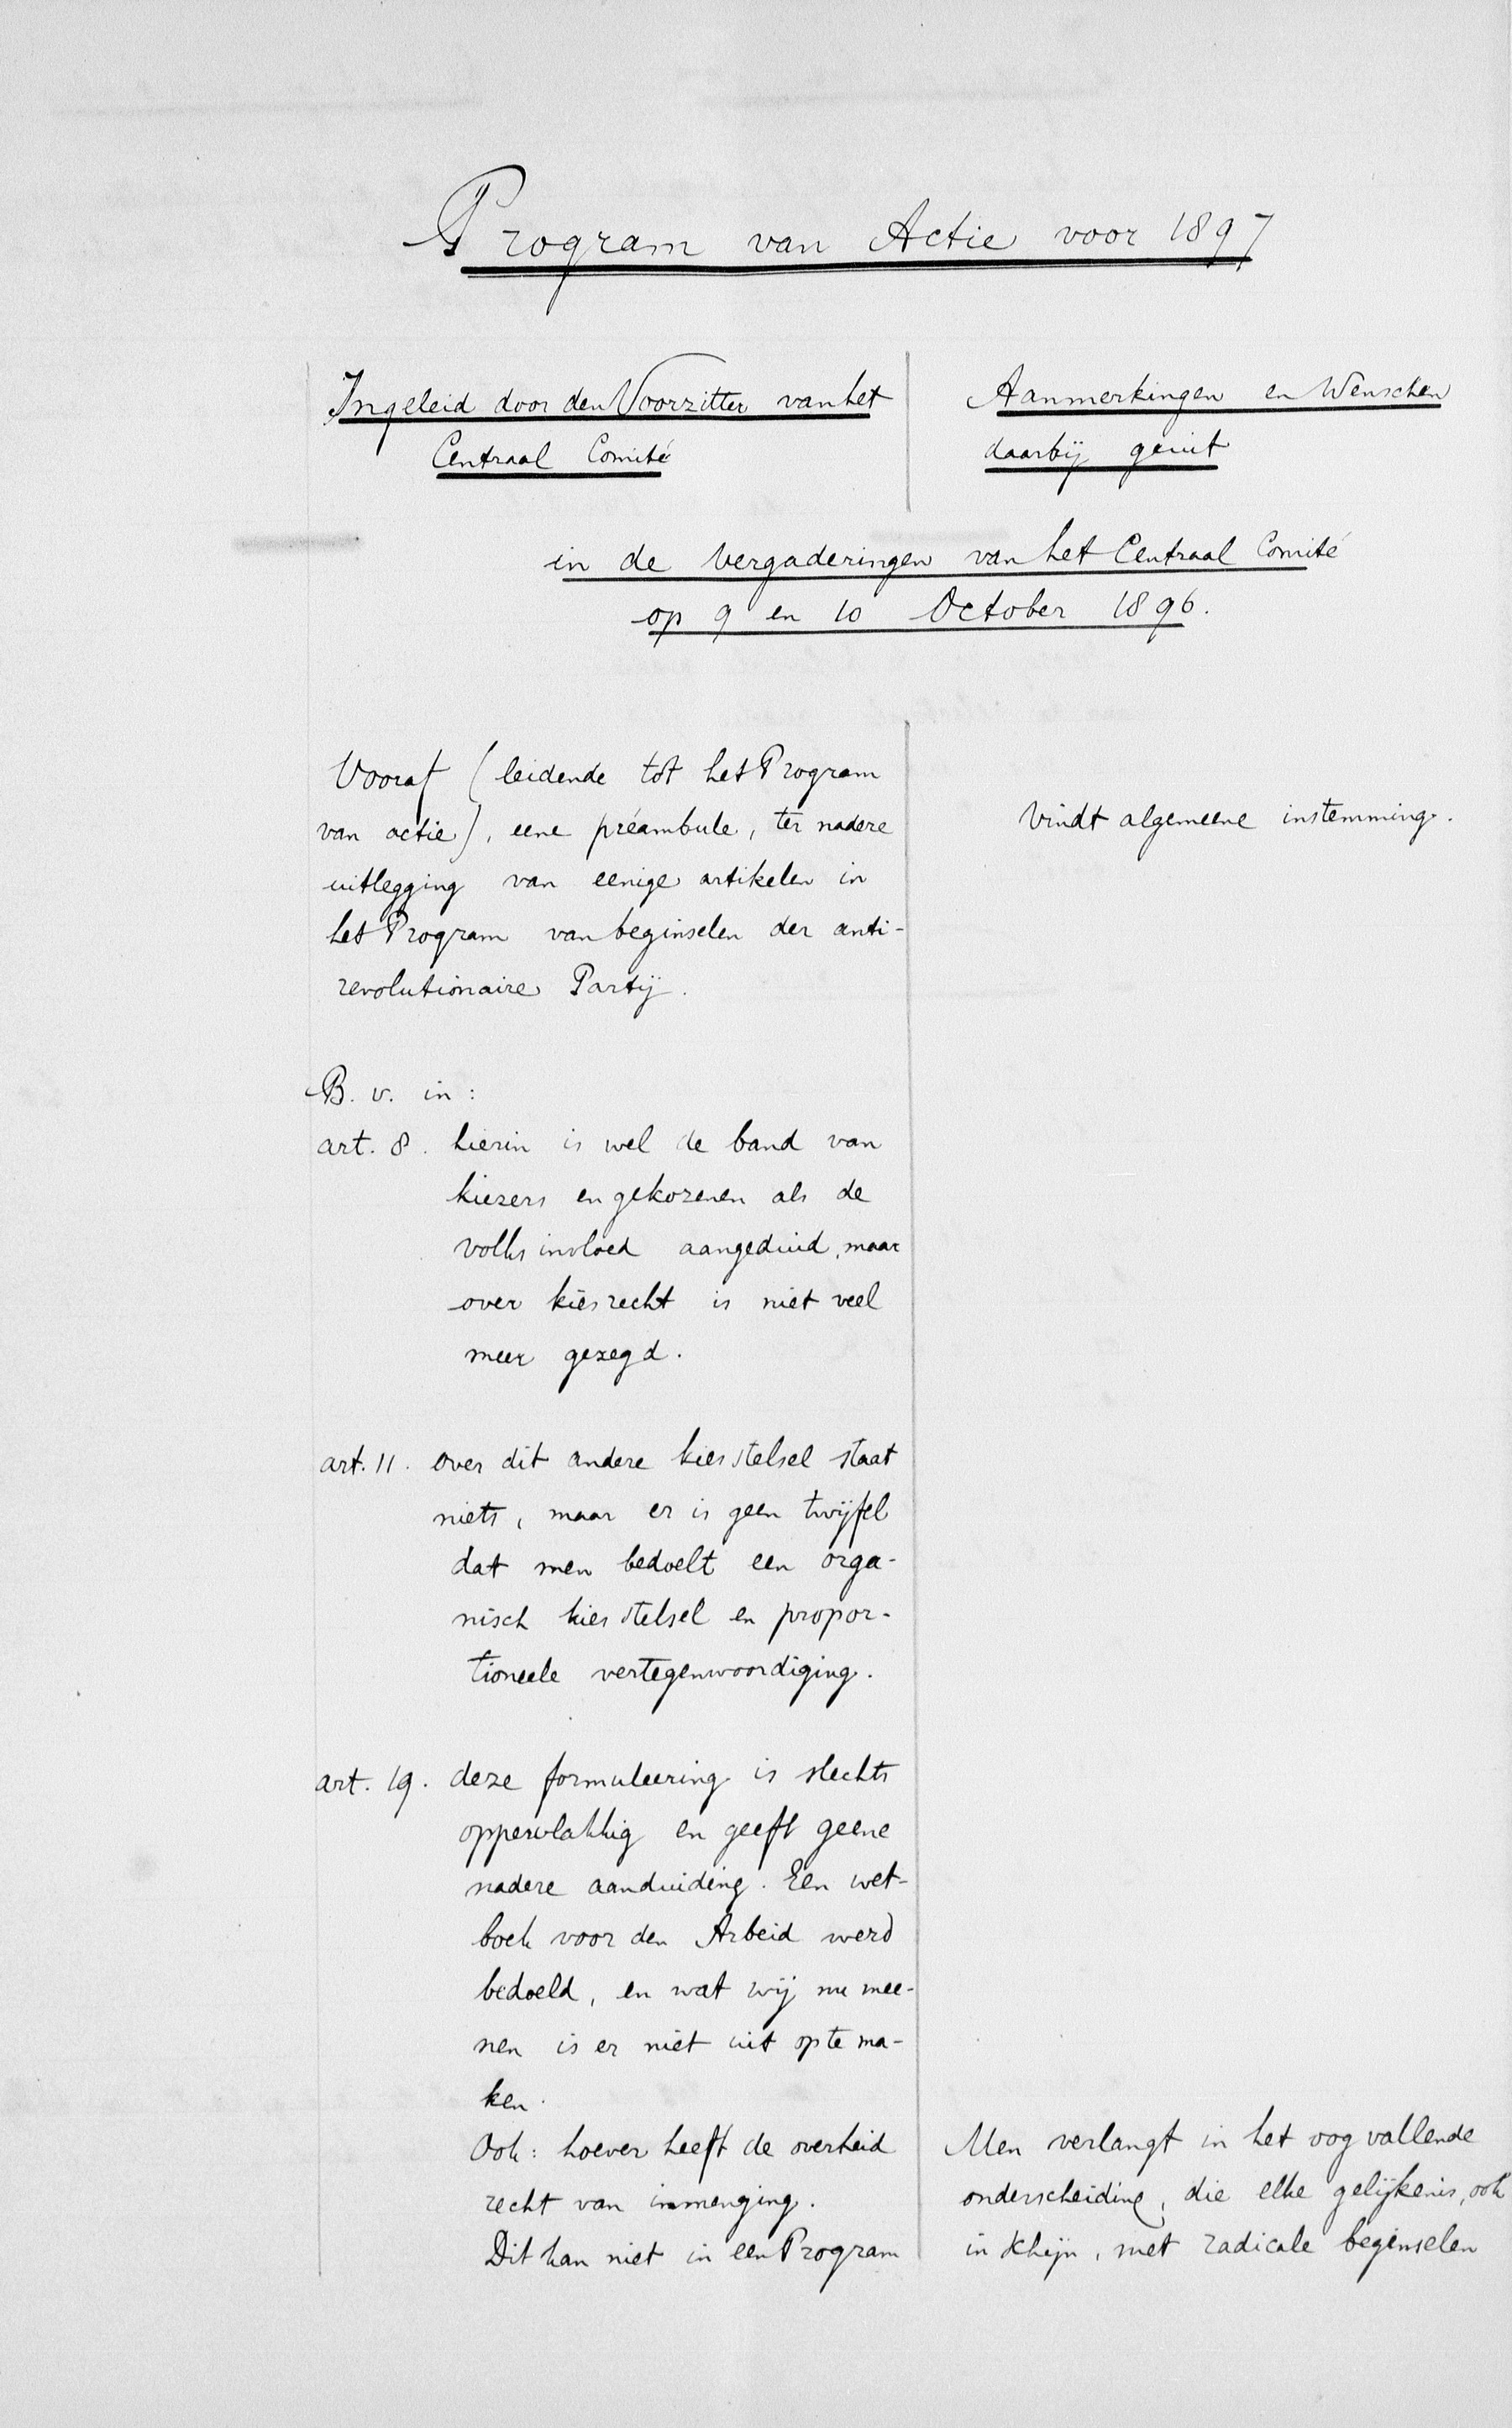 Program van Actie voor 1897
Ingeleid door den Voorzitter van het
Centraal Comité
Aanmerkingen en Wenschen
daarbij geuit
in de vergaderingen van het Centraal Comité
op 9 en 10 October 1896.
Vooraf (leidende tot het Program
van actie), eene préambule, ter nadere
uitlegging van eenige artikelen in
het Program van beginselen der anti-
revolutionaire Partij.
Vindt algemeene instemming.
B. v. in:
art. 8. hierin is wel de band van
kiezers en gekozenen als de
volksinvloed aangeduid, maar
over kiesrecht is niet veel
meer gezegd.
art. 11. over dit andere kiesstelsel staat
niets, maar er is geen twijfel
dat men bedoelt een orga-
nisch kiesstelsel en propor-
tioneele vertegenwoordiging.
art. 19. deze formuleering is slechts
oppervlakkig en geeft geene
nadere aanduiding. Een wet-
boek voor den Arbeid werd
bedoeld, en wat wij nu mee-
nen is er niet uit op te ma-
ken.
Ook: hoever heeft de overheid
recht van inmenging.
Dit kan niet in een Program
Men verlangt in het oog vallende
onderscheiding, die elke gelijkenis, ook
in schijn, met radicale beginselen